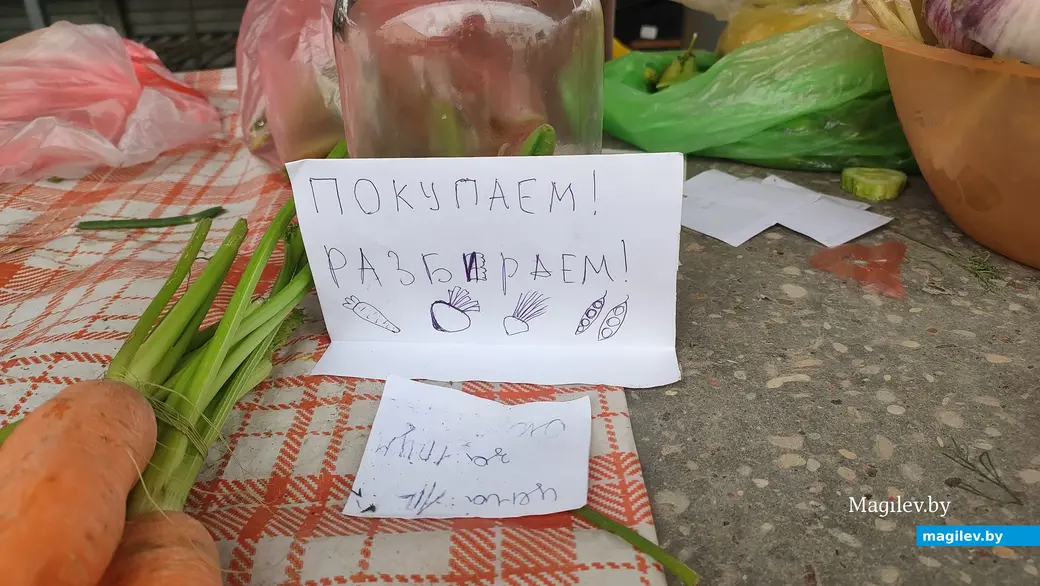 ПОКУПАЕМ!
РАЗБИРАЕМ!
цена
за 1
Magilev.by
magilev.by